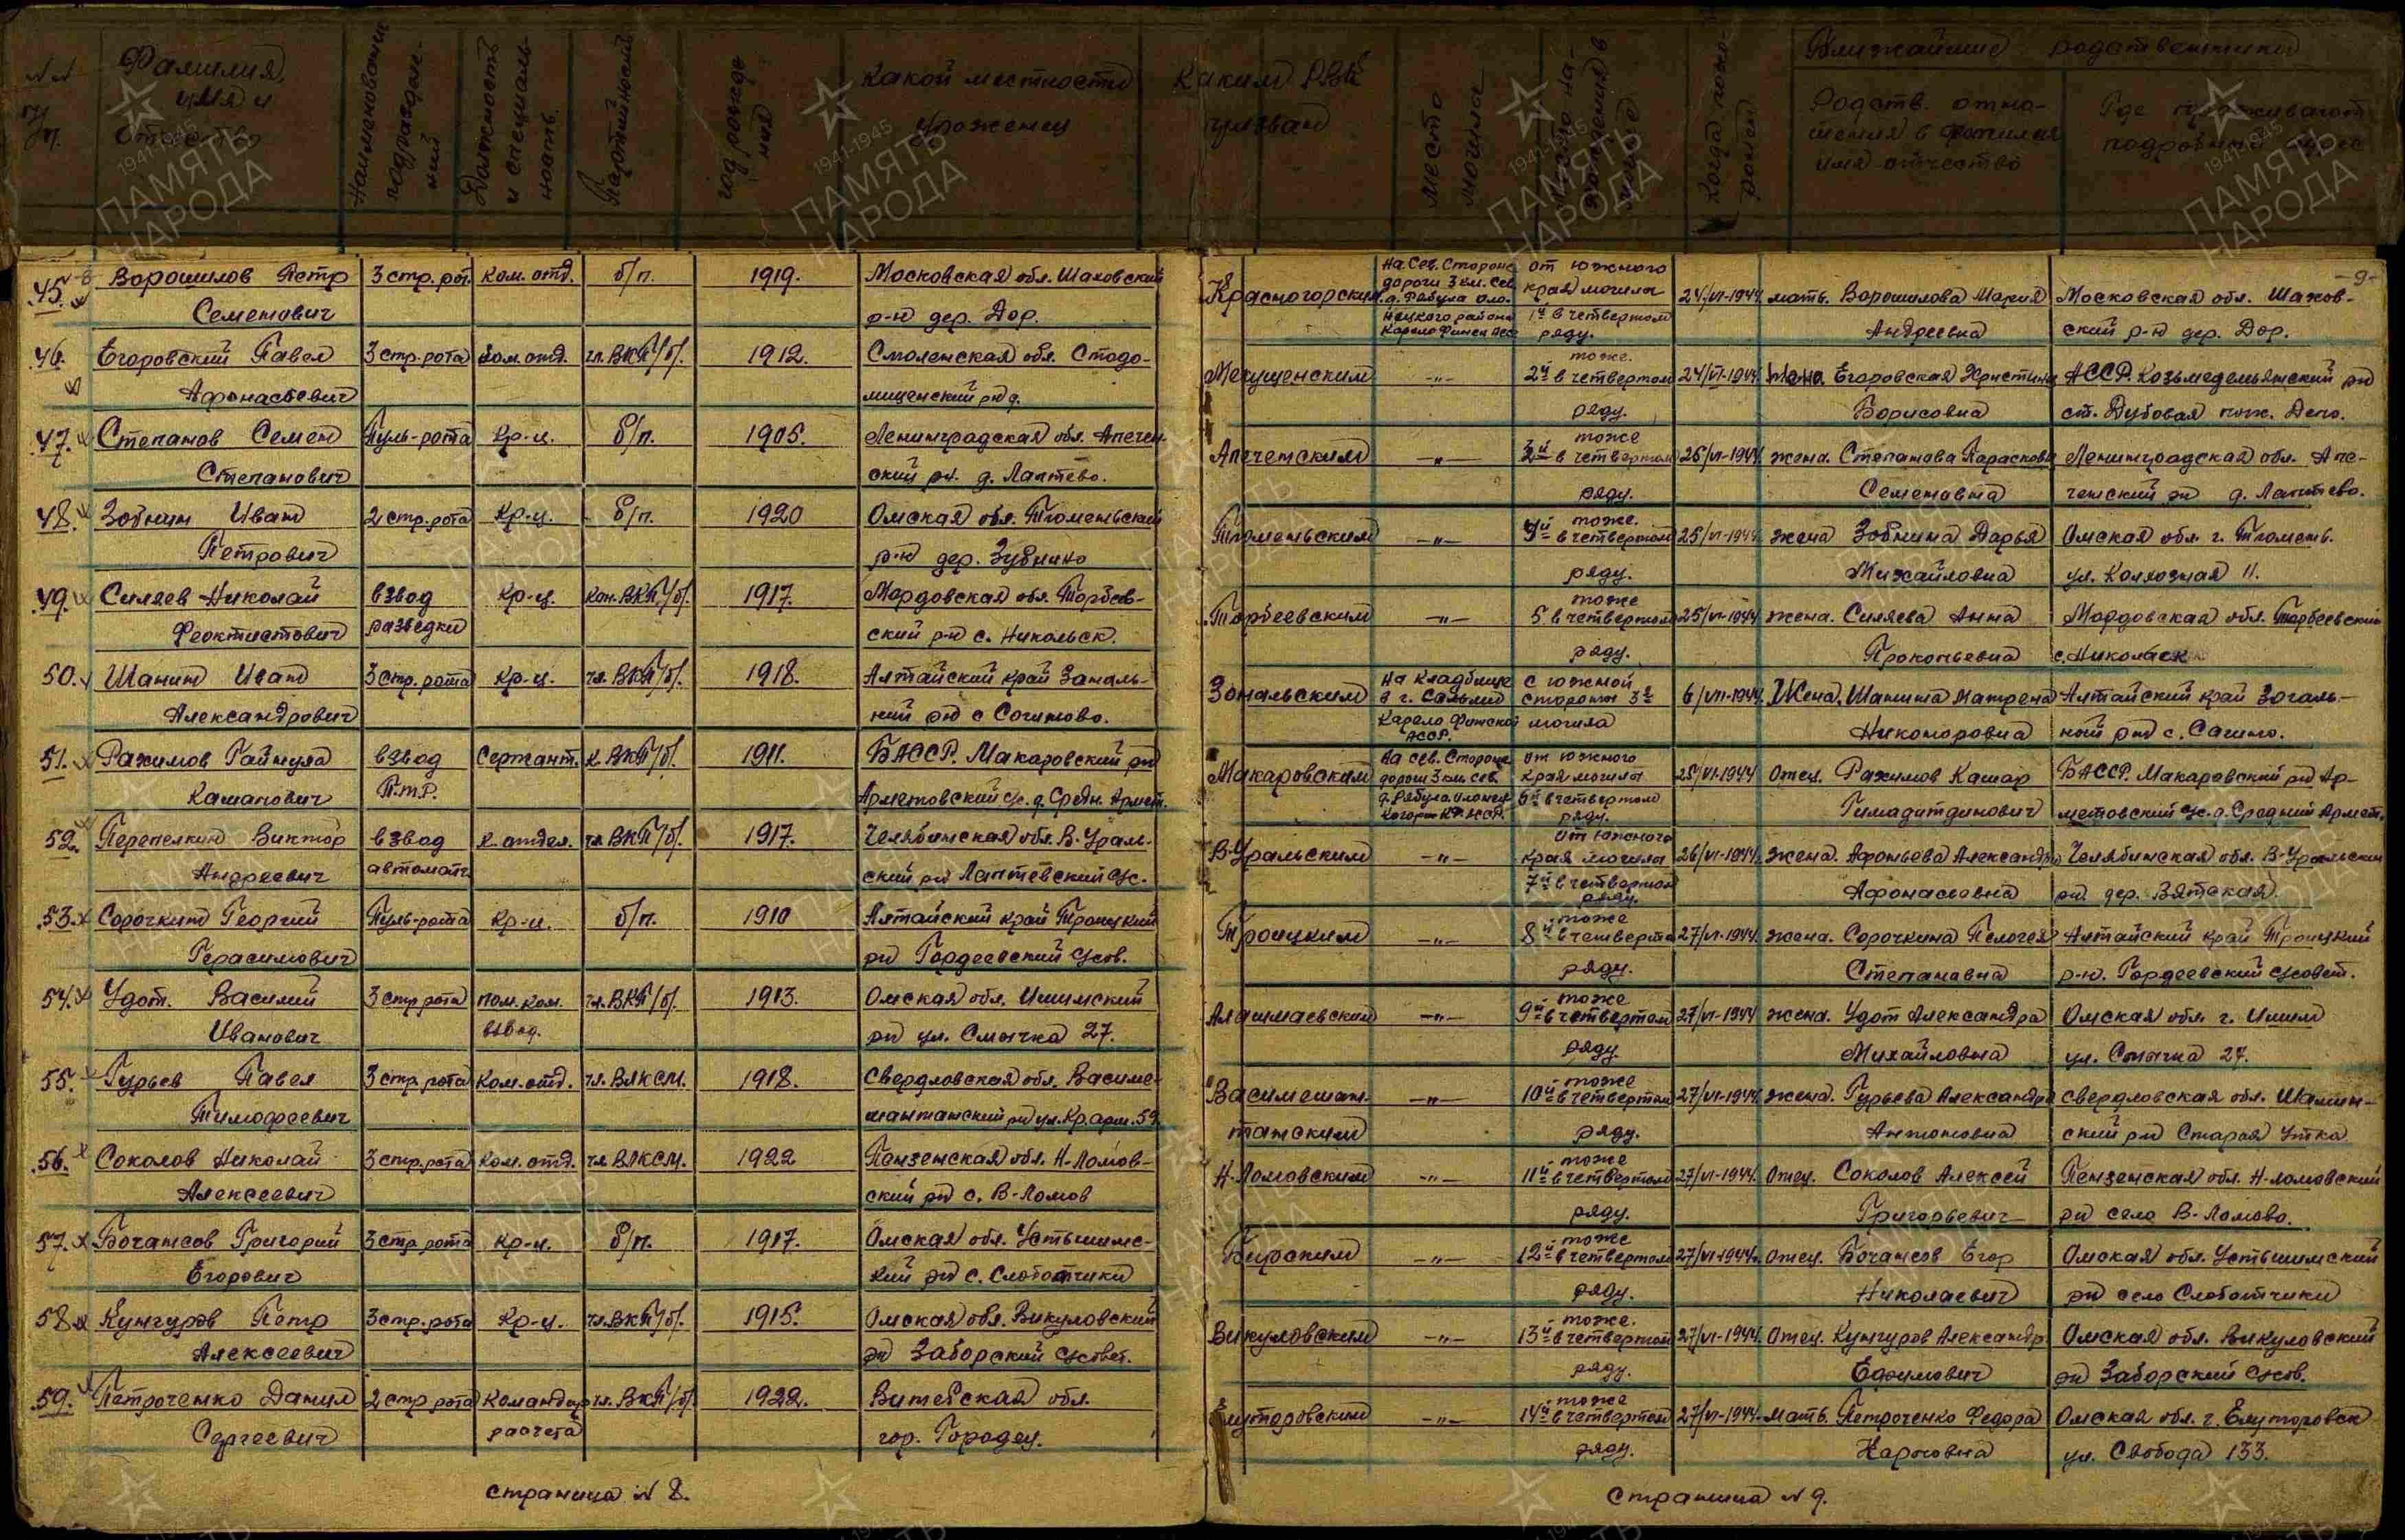 NN п/п.
Фамилия, имя и отчество
Наименование подразделений
Должность и специальность.
Партийность
год рождения
Какой местности уроженец
Каким РВК призван
Место могилы
Когда похоронен
Ближайшие родственники
Родств. отношения в фамилия имя отчество
Где проживают подробный адрес
-9-
45. Ворошилов Петр 3 стр. рот. Ком. отд. б/п. 1919. Московская обл. Шаховский
Семенович р-н дер. Дор.
Красногорским На. Сев. Стороне дороги 3 км. Сев. от южного края могила 1й в четвертом ряду. 24/VI-1944 мать. Ворошилова Мария Московская обл. Шахов-
Андреевна ский р-н дер. Дор.
46. Егоровский Павел 3 стр. рота Ком. отд. чл. ВКП/б/. 1912. Смоленская обл. Стодо-
Афонасьевич лищенский р-н д.
-"- тоже. 2й в четвертом 24/VI-1944 Жена. Егоровская Христина АССР. Козьмедемьянский рн
ряду. Борисовна ст. Дубовая пож. Депо.
47. Степанов Семен Пуль-рота Кр-ц. б/п. 1905. Ленинградская обл. Апечен-
Степанович ский рн. д. Лаптево.
Апеченским -"- тоже 3й в четвертом 25/VI-1944 жена. Степанова Парасковья Ленинградская обл. Апе-
ряду. Семеновна ченский рн д. Лаптево.
48. Зобнин Иван 2 стр. рота Кр-ц. б/п. 1920 Омская обл. Тюменьский
Петрович р-н дер. Зубнино
Тюменьским -"- тоже. 4й в четвертом 25/VI-1944 жена Зобнина Дарья Омская обл. г. Тюмень.
ряду. Михайловна ул. Колхозная 11.
49. Силяев Николай взвод Кр-ц. Кан. ВКП/б/. 1917. Мордовская обл. Торбеев-
Феоктистович разведки ский р-н с. Никольск.
Торбеевским -"- тоже 5 в четвертом 25/VI-1944 жена. Силяева Анна Мордовская обл. Торбеевский
ряду. Прокопьевна с. Никольск
50. Шанин Иван 3 стр. рота Кр-ц. чл. ВКП/б/. 1918. Алтайский край Зональ-
Александрович ний рн с Согиново.
Зональским На кладбище в г. Сальми Карело Финской АССР. с южной стороны 3я могила 6/VII-1944 Жена. Шанина Матрена Алтайский край Зональ-
Никоноровна ной рн с. Сагино.
51. Рахимов Гаймула взвод Сержант. К. ВКП/б/. 1911. БАССР. Макаровский рн
Кашапович П.Т.Р. Арметовский с/с. д. Средн. Армет.
Макаровским На сев. Стороне дороги 3 км. Сев. от южного края могила 6й в четвертом ряду. 25/VI-1944 Отец. Рахимов Кашар БАССР. Макаровский рн Ар-
Гимадитдинович метовский с/с. д. Средний Армет.
52. Перепелкин Виктор взвод К. отдел. чл. ВКП/б/. 1917. Челябинская обл. В. Ураль-
Андреевич автоматч. ский рн Лаптевский с/с.
В-Уральским -"- от южного края могила 7й в четвертом ряду. 26/VI-1944 жена. Афоньева Александра Челябинская обл. В-Уральский
Афонасьевна рн. дер. Вятская.
53. Сорочкин Георгий Пуль-рота Кр-ц. б/п. 1910 Алтайский край Троицкий
Герасимович рн Гордеевский с/сов.
Троицким -"- тоже 8й в четвертом 27/VI-1944. жена. Сорочкина Пелогея Алтайский край Троицкий
ряду. Степановна р-н. Гордеевский с/совет.
54. Удот. Василий 3 стр. рота пом. ком. чл. ВКП/б/. 1913. Омская обл. Ишимский
Иванович взвод. рн ул. Смычка 27.
-"- тоже 9й в четвертом 27/VI-1944 жена. Удот Александра Омская обл. г. Ишим
ряду. Михайловна ул. Смычка 27.
55. Гурьев Павел 3 стр. рота Ком. отд. чл. ВЛКСМ. 1918. Свердловская обл. Василе-
Тимофеевич шантанский рн ул. Кр. арм. 59
Василешан- -"- тоже 10й в четвертом 27/VI-1944 жена. Гурьева Александра Свердловская обл. Шалин-
танским ряду. Антоновна ский рн Старая Утка
56. Соколов Николай 3 стр. рота Ком. отд. чл ВЛКСМ. 1922 Пензенская обл. Н-Ломов-
Алексеевич ский рн с. В-Ломов
Н-Ломовским -"- тоже 11й в четвертом 27/VI-1944. Отец. Соколов Алексей Пензенская обл. Н-Ломовский
ряду. Григорьевич рн село В-Ломово.
57. Бочансов Григорий 3 стр. рота Кр-ц. б/п. 1917. Омская обл. Устьишимс-
Егорович кий рн с. Слободчики
-"- тоже 12й в четвертом 27/VI-1944. Отец. Бочансов Егор Омская обл. Устьишимский
ряду. Николаевич рн село Слободчики
58 Кунгуров Петр 3 стр. рота Кр-ц. чл. ВКП/б/. 1915. Омская обл. Викуловский
Алексеевич рн Заборский с/совет.
Викуловским -"- тоже. 13й в четвертом 27/VI-1944. Отец. Кунгуров Александр Омская обл. Викуловский
ряду. Ефимович рн Заборский с/сов.
59. Петроченко Данил 2 стр рота Командир чл. ВКП/б/ 1922. Витебская обл.
Сергеевич расчета гор. Городец.
Елуторовским -"- тоже 14й в четвертом 27/VI-1944. Мать. Петроченко Федора Омская обл. г. Елуторовск
ряду. Карповна ул. Свобода 133.
Страница N 8.
Страница N 9.
1941-1945
ПАМЯТЬ
НАРОДА